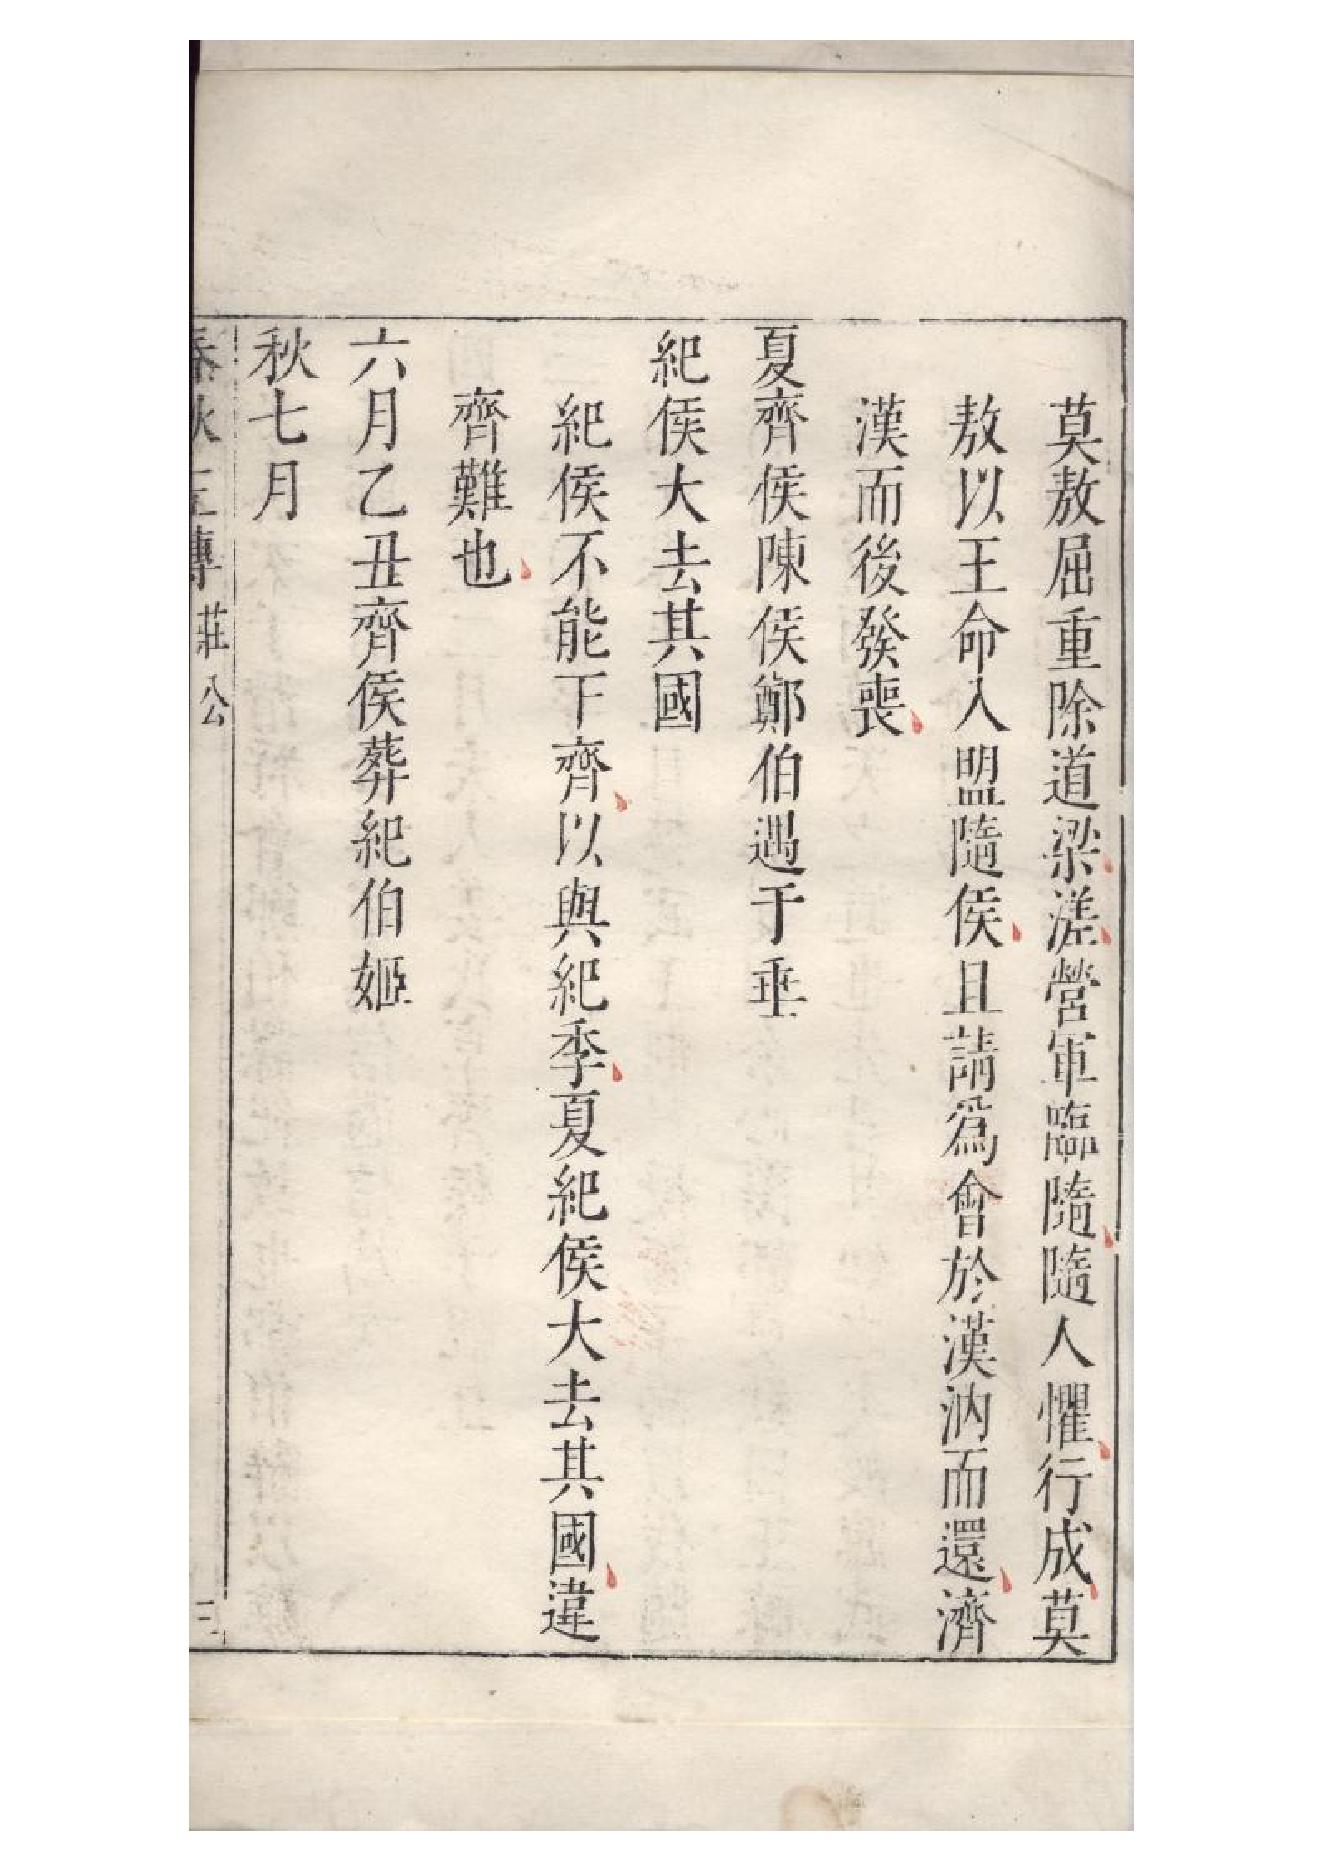 莫敖屈重除道梁溠營軍臨隨隨人懼行成莫
敖以王命入盟隨侯且請爲會於漢汭而還濟
漢而後發喪
夏齊侯陳侯鄭伯遇于垂
紀侯大去其國
紀侯不能下齊以與紀季夏紀侯大去其國違
齊難也
六月乙丑齊侯葬紀伯姬
秋七月
春秋左傳 莊公 三